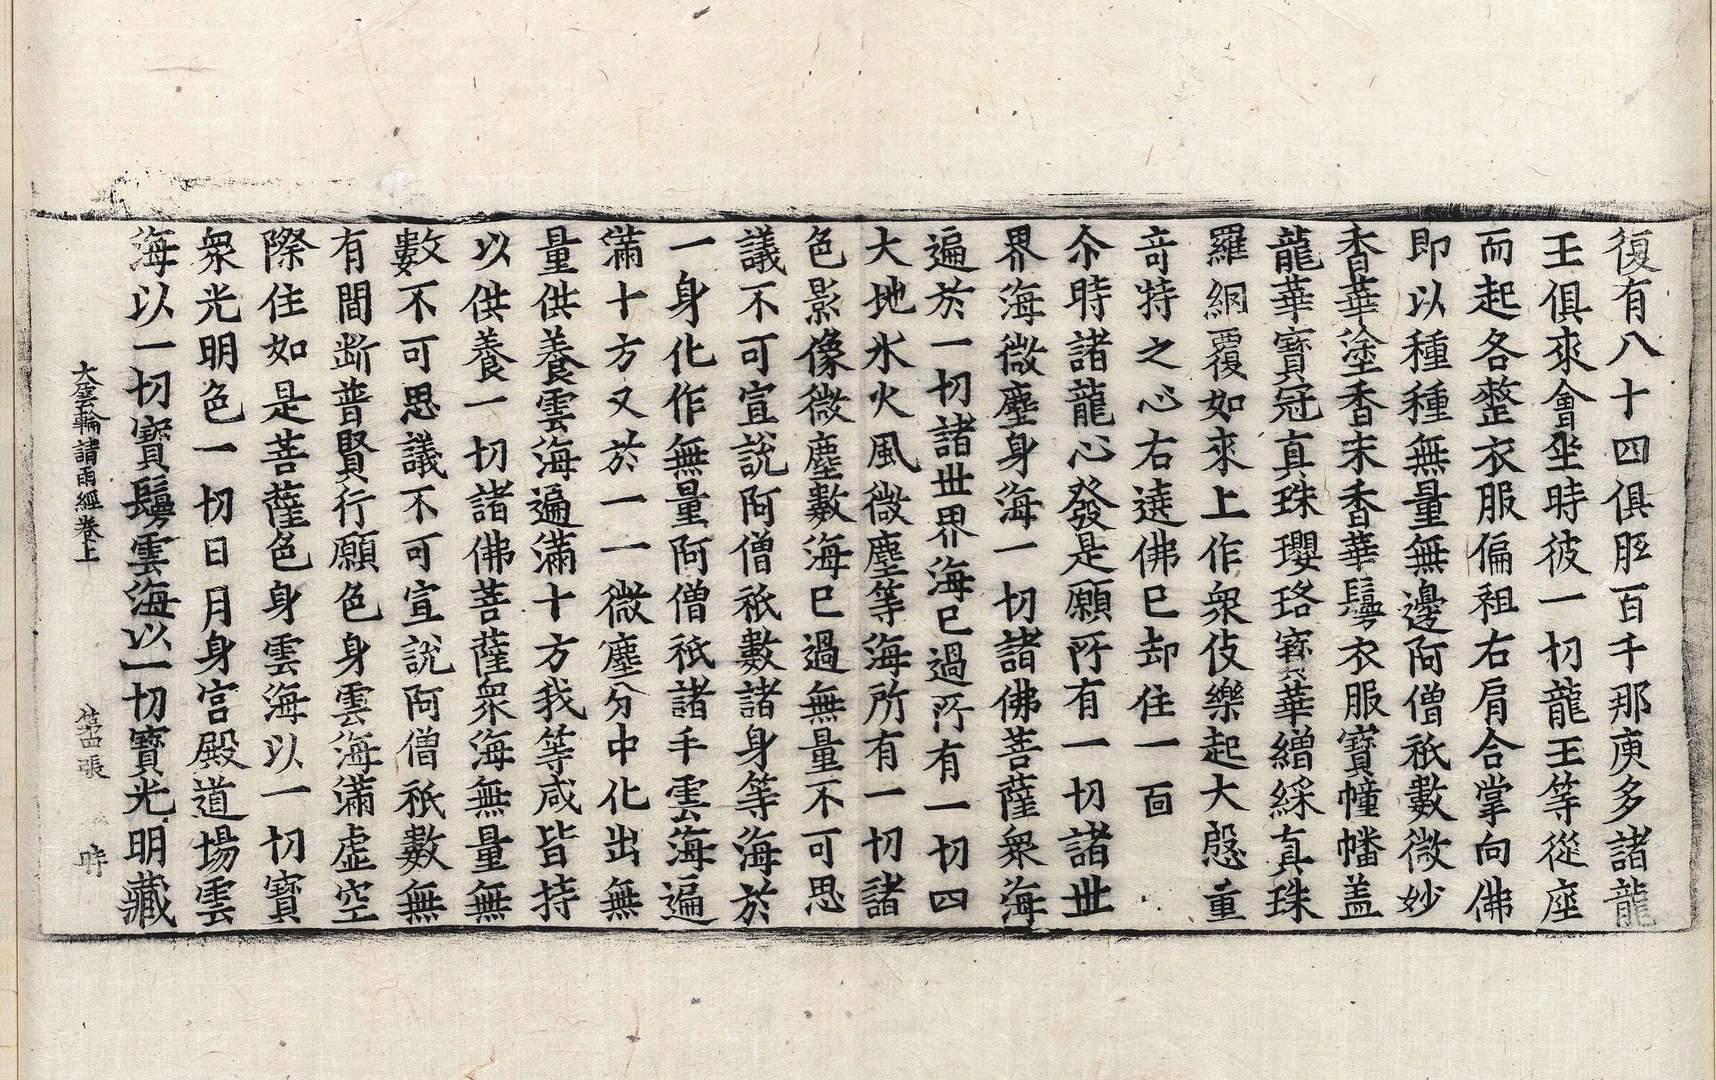 復有八十四俱胝百千那庾多諸龍
王俱來會坐時彼一切龍王等從座
而起各整衣服偏袒右肩合掌向佛
即以種種無量無邊阿僧祇數微妙
香華塗香末香華鬘衣服寶幢幡盖
龍華寶冠真珠瓔珞寶華繒綵真珠
羅網覆如來上作衆伎樂起大慇重
竒特之心右遶佛已却住一面
尒時諸龍心發是願所有一切諸世
界海微塵身海一切諸佛菩薩衆海
遍於一切諸世界海已過所有一切四
大地水火風微塵等海所有一切諸
色影像微塵數海已過無量不可思
議不可宣說阿僧祇數諸身等海於
一身化作無量阿僧祇諸手雲海遍
滿十方又於一一微塵分中化出無
量供養雲海遍滿十方我等咸皆持
以供養一切諸佛菩薩衆海無量無
數不可思議不可宣說阿僧祇數無
有間断普賢行願色身雲海滿虛空
際住如是菩薩色身雲海以一切寶
衆光明色一切日月身宮殿道場雲
海以一切寶鬘雲海以一切寶光明藏
大雲輪請雨經卷上 張 時